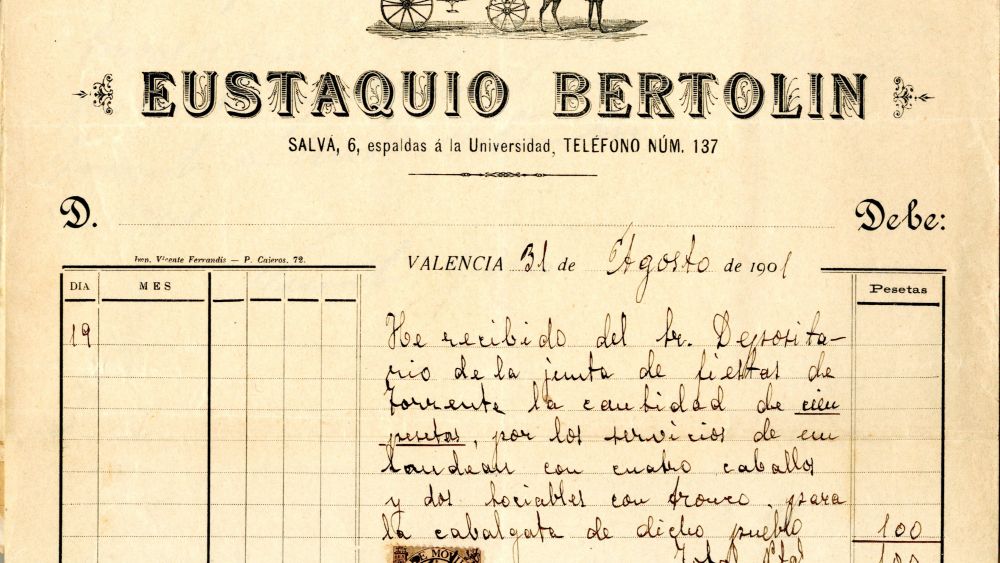 EUSTAQUIO BERTOLIN
SALVÁ, 6, espaldas á la Universidad, TELÉFONO NÚM. 137
D.
Debe:
Imp. Vicente Ferrandis — P. Cajeros, 72.
VALENCIA 31 de Agosto de 1901
DIA MES Pesetas
19 He recibido del Sr. Deposita-
rio de la junta de fiestas de
Torrente la cantidad de cien
pesetas, por los servicios de un
landeau con cuatro caballos
y dos sociables con tronco, para
la cabalgata de dicho pueblo 100
Total Ptas 100
DE MOVIL